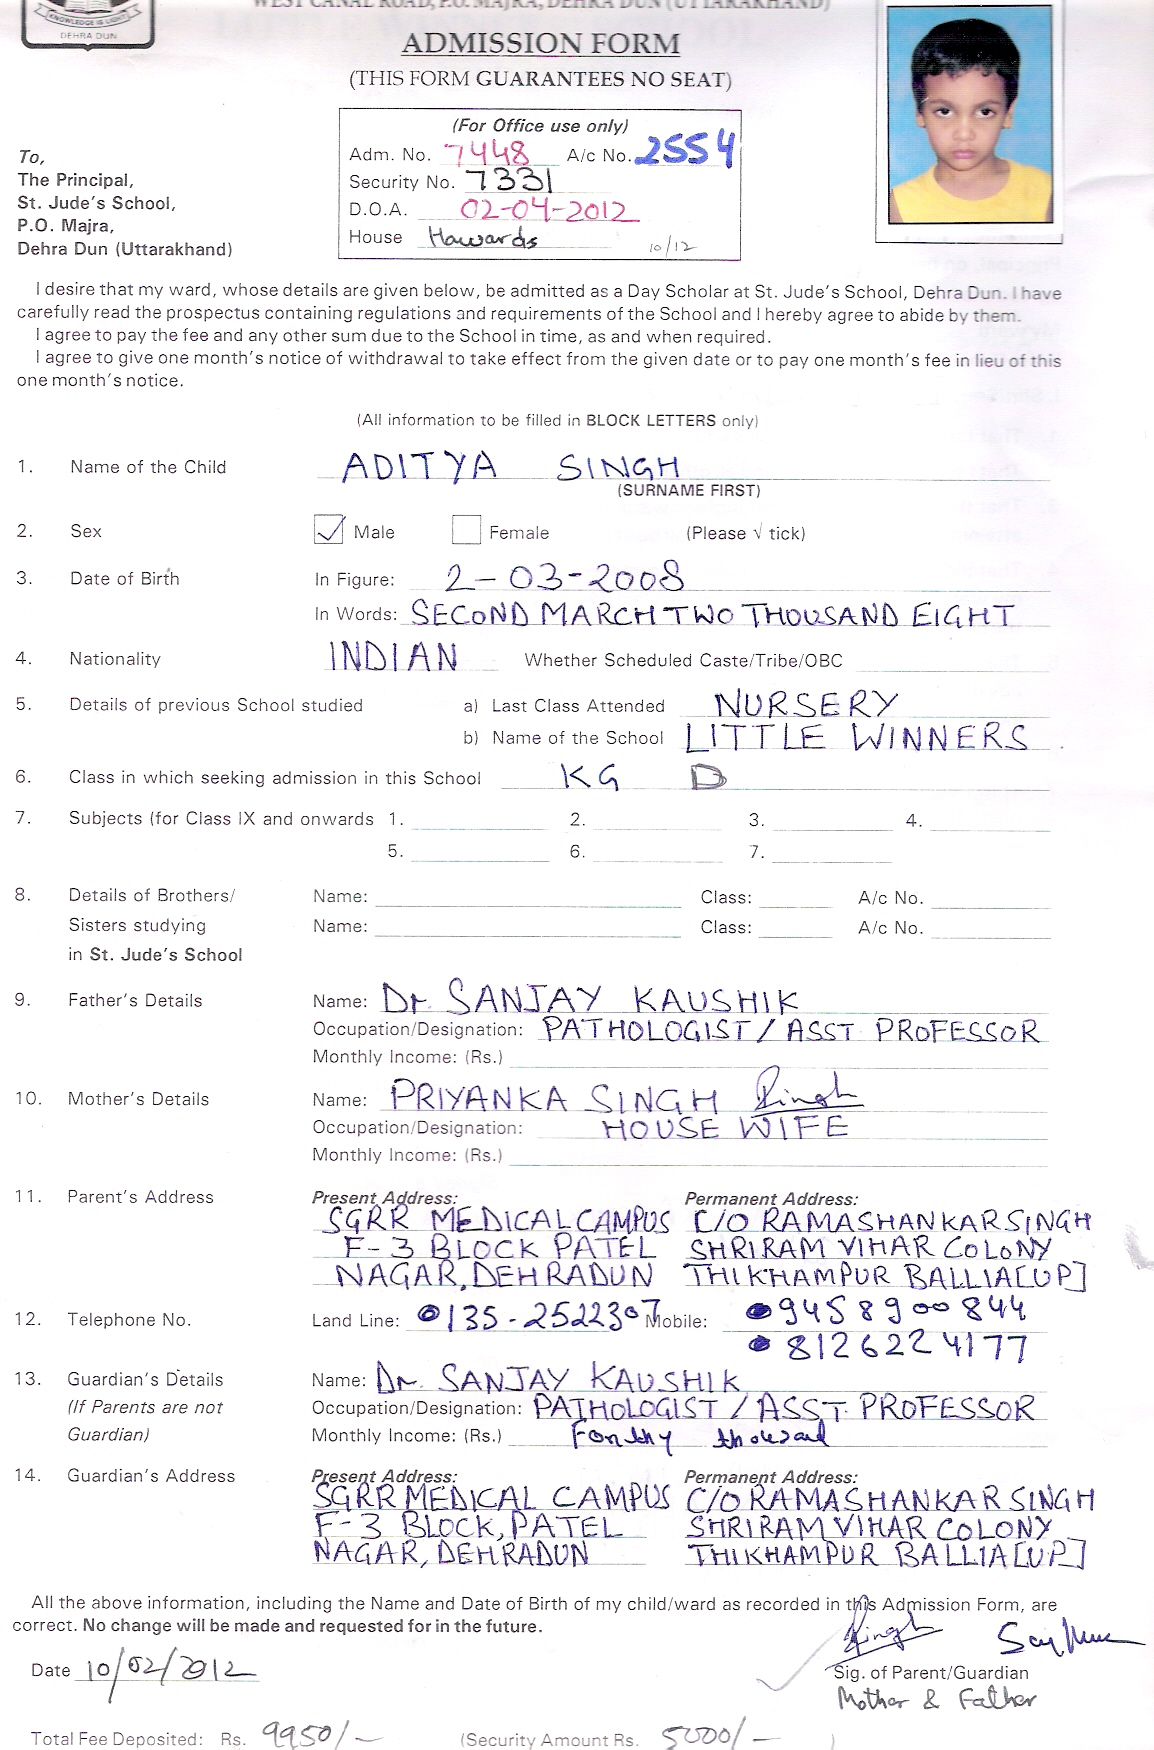 WEST CANAL ROAD, P.O. MAJRA, DEHRA DUN (UTTARAKHAND)
KNOWLEDGE IS LIGHT
DEHRA DUN
ADMISSION FORM
(THIS FORM GUARANTEES NO SEAT)
(For Office use only)
Adm. No. 7448 A/c No. 2554
Security No. 7331
D.O.A. 02-04-2012
House Hawards
10/12
To,
The Principal,
St. Jude's School,
P.O. Majra,
Dehra Dun (Uttarakhand)
I desire that my ward, whose details are given below, be admitted as a Day Scholar at St. Jude's School, Dehra Dun. I have
carefully read the prospectus containing regulations and requirements of the School and I hereby agree to abide by them.
I agree to pay the fee and any other sum due to the School in time, as and when required.
I agree to give one month's notice of withdrawal to take effect from the given date or to pay one month's fee in lieu of this
one month's notice.
(All information to be filled in BLOCK LETTERS only)
1. Name of the Child ADITYA SINGH
(SURNAME FIRST)
2. Sex Male Female (Please √ tick)
3. Date of Birth In Figure: 2-03-2008
In Words: SECOND MARCH TWO THOUSAND EIGHT
4. Nationality INDIAN Whether Scheduled Caste/Tribe/OBC
5. Details of previous School studied a) Last Class Attended NURSERY
b) Name of the School LITTLE WINNERS
6. Class in which seeking admission in this School KG D
7. Subjects (for Class IX and onwards 1. 2. 3. 4.
5. 6. 7.
8. Details of Brothers/ Name: Class: A/c No.
Sisters studying Name: Class: A/c No.
in St. Jude's School
9. Father's Details Name: Dr. SANJAY KAUSHIK
Occupation/Designation: PATHOLOGIST / ASST PROFESSOR
Monthly Income: (Rs.)
10. Mother's Details Name: PRIYANKA SINGH
Occupation/Designation: HOUSE WIFE
Monthly Income: (Rs.)
11. Parent's Address Present Address: Permanent Address:
SGRR MEDICAL CAMPUS C/O RAMASHANKAR SINGH
F-3 BLOCK PATEL SHRIRAM VIHAR COLONY
NAGAR, DEHRADUN THIKHAMPUR BALLIA [UP]
12. Telephone No. Land Line: 0135-2522307 Mobile: 9458900844
8126224177
13. Guardian's Details Name: Dr. SANJAY KAUSHIK
(If Parents are not Occupation/Designation: PATHOLOGIST / ASST. PROFESSOR
Guardian) Monthly Income: (Rs.) Fonthy thousad
14. Guardian's Address Present Address: Permanent Address:
SGRR MEDICAL CAMPUS C/O RAMASHANKAR SINGH
F-3 BLOCK, PATEL SHRIRAM VIHAR COLONY
NAGAR, DEHRADUN THIKHAMPUR BALLIA [UP]
All the above information, including the Name and Date of Birth of my child/ward as recorded in this Admission Form, are
correct. No change will be made and requested for in the future.
Date 10/02/2012
Sig. of Parent/Guardian
Mother & Father
Total Fee Deposited: Rs. 9950/- (Security Amount Rs. 5000/- )